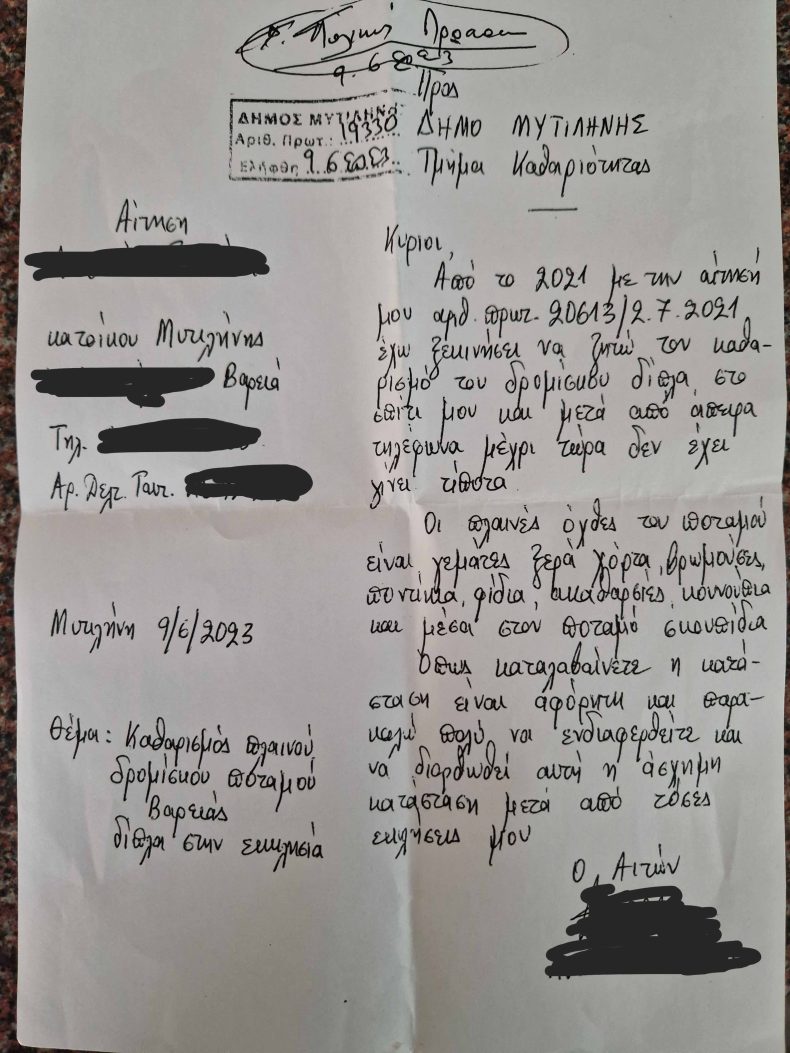 Πράσιν
9.6.2023
ΔΗΜΟΣ ΜΥΤΙΛΗΝΗΣ
Αριθ. Πρωτ.: 19330
Ελήφθη 9.6.2023
Προς
ΔΗΜΟ ΜΥΤΙΛΗΝΗΣ
Τμήμα Καθαριότητας
Αίτηση
κατοίκου Μυτιλήνης
Βαρειά
Τηλ.
Αρ. Δελτ. Ταυτ.
Μυτιλήνη 9/6/2023
Θέμα: Καθαρισμός πλαινού
δρομίσκου ποταμού
Βαρειάς
δίπλα στην εκκλησιά
Κύριοι,
Από το 2021 με την αίτησή
μου αριθ. πρωτ. 20613/2.7.2021
έχω ξεκινήσει να ζητώ τον καθα-
ρισμό του δρομίσκου δίπλα στο
σπίτι μου και μετά από άπειρα
τηλέφωνα μέχρι τώρα δεν έχει
γίνει τίποτα
Οι πλαινές όχθες του ποταμού
είναι γεμάτες ξερά χόρτα, βρωμούσες,
ποντίκια, φίδια, ακαθαρσίες, κουνούπια
και μέσα στον ποταμό σκουπίδια
Όπως καταλαβαίνετε η κατά-
σταση είναι αφόρητη και παρα-
καλώ πολύ να ενδιαφερθείτε και
να διορθωθεί αυτή η άσχημη
κατάσταση μετά από τόσες
εκκλήσεις μου
Ο Αιτών